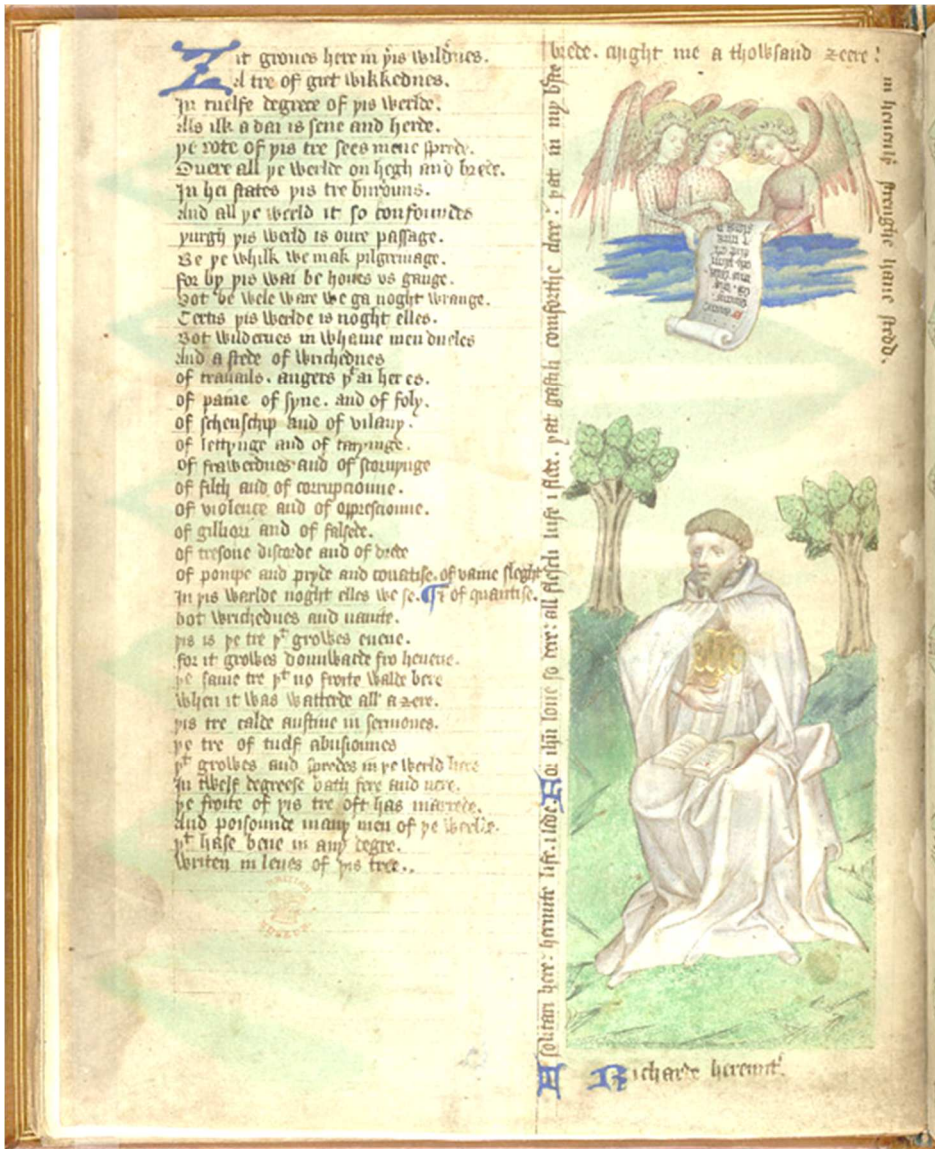 Ȝit groues here in þis wildrnes.
A tre of gret wikkednes.
In tuelfe degrece of þis werlde.
Als ilk a dai is sene and herde.
þe rote of þis tre sees mene sprede.
Ouere all þe werlde on hegh and brede.
In hei states þis tre buriouns.
And all þe werld it so confoundes
þurgh þis werld is oure passage.
Be þe whilk we mak pilgrimage.
for by þis wai be houes vs gange.
Bot be wele ware we ga noght wrange.
Certis þis werlde is noght elles.
Bot wildernes in whame men duelles
And a stede of wrichednes
of trauails. angers þt ai her es.
of paine of syne. and of foly.
of schenschip and of vilany.
of lettynge and of taryinge.
of frawerdnes and of storuynge
of filth and of corrupcioune.
of violence and of oppressioune.
of gillori and of falsede.
of tresone discorde and of drede
of pompe and pryde and couatise. of vaine sleght
In þis warlde noght elles we se. ¶ of quantise.
bot wrichednes and vanite.
þis is þe tre þt growes euene.
for it growes dounwarde fro heuene.
þe same tre þt no froite walde bere
when it was watterde all a ȝere.
þis tre calde austine in sermones.
þe tre of tuelf abusiounes
þt growes and spredes in þe werld here
In twelf degreese bath fere and nere.
þe froite of þis tre oft has marrede.
And poisounde many men of þe werlde.
þt hase bene in any degre.
writen in leues of þis tree.
A solitari here: hermite life. i lede. For ihu loue so dere: all flesch lufe i flede. þat gastli comforthe dere: þat in my brste
brede. might me a thowsand ȝeere:
in heuenly strenghe haue stedd.
Richarde heremit.